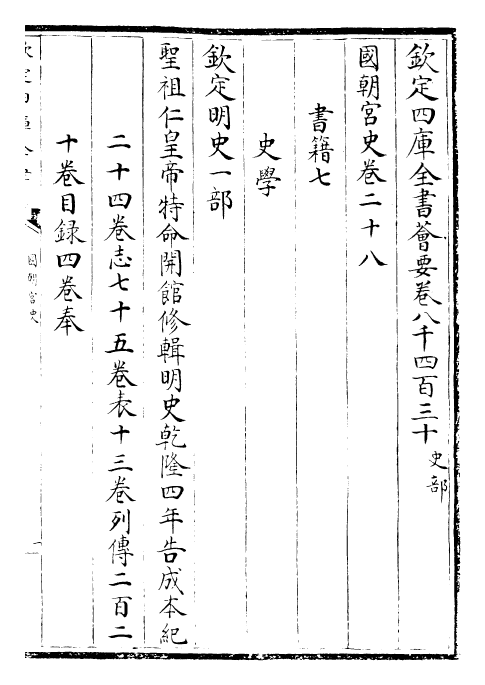 欽定四庫全書薈要卷八千四百三十 史部
國朝宮史卷二十八
書籍七
史學
欽定明史一部
聖祖仁皇帝特命開館修輯明史乾隆四年告成本紀
二十四卷志七十五卷表十三卷列傳二百二
十卷目録四卷奉
國朝宮史